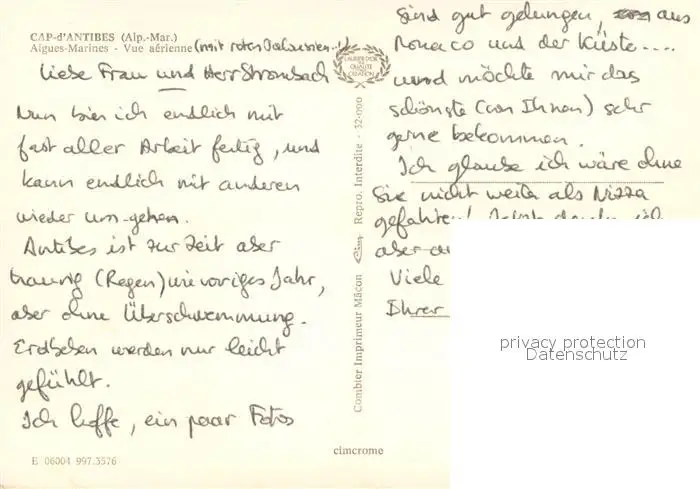 CAP-d'ANTIBES (Alp.-Mar.)
Aigues-Marines - Vue aérienne (mit roten
Liebe Frau und Herr Strombach
Nun bin ich endlich mit
fast aller Arbeit fertig, und
kann endlich mit anderen
wieder um-gehen.
Antibes ist zur Zeit aber
traurig (Regen) wie voriges Jahr,
aber ohne Überschwemmung.
Erdbeben werden nur leicht
gefühlt.
Ich hoffe, ein paar Fotos
E 06004 997.3576
LAURIER D'OR
DE QUALITÉ
CREATION
Combier Imprimeur Mâcon Cim Repro. Interdite - 32-000
cimcrome
sind gut gelungen, aus
Monaco und der Küste....
und möchte mir das
schönste (von Ihnen) sehr
gerne bekommen.
Ich glaube ich wäre ohne
Sie nicht weiter als Nizza
gefahren! ich
aber
Viele
Ihrer
privacy protection
Datenschutz